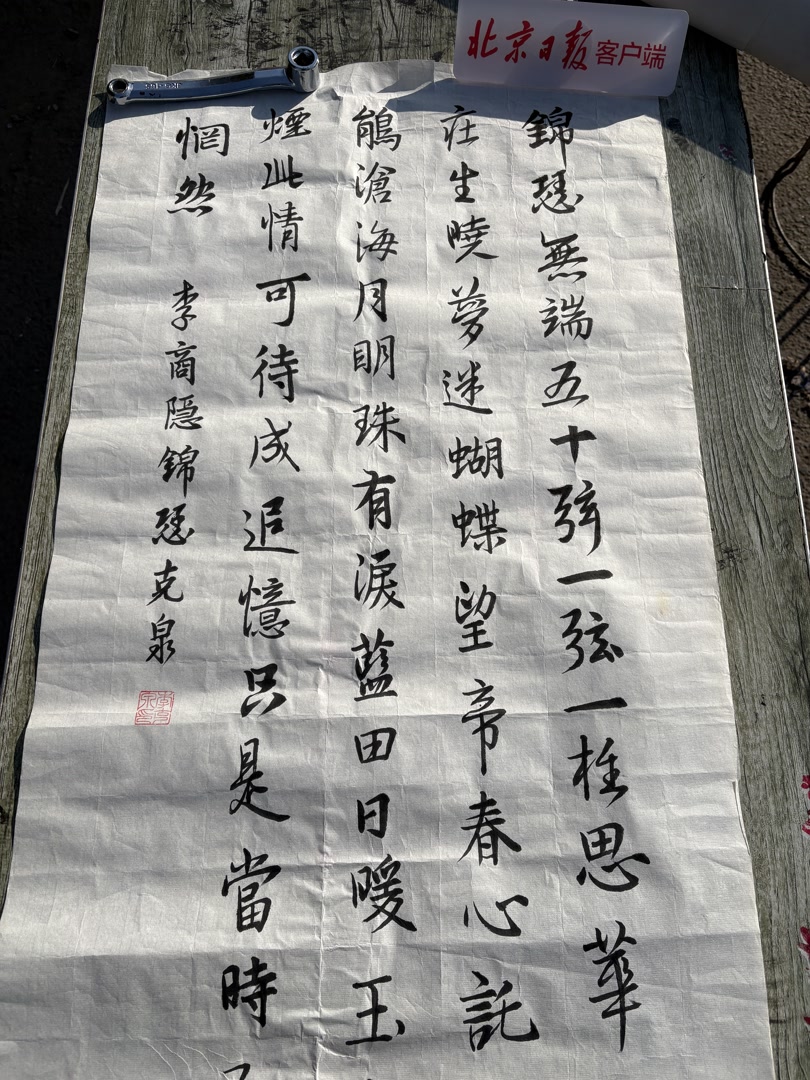 北京日报客户端
錦瑟無端五十弦一弦一柱思華
莊生曉夢迷蝴蝶望帝春心託
鵑滄海月明珠有淚藍田日暖玉
煙此情可待成追憶只是當時
惘然
李商隐錦瑟克泉